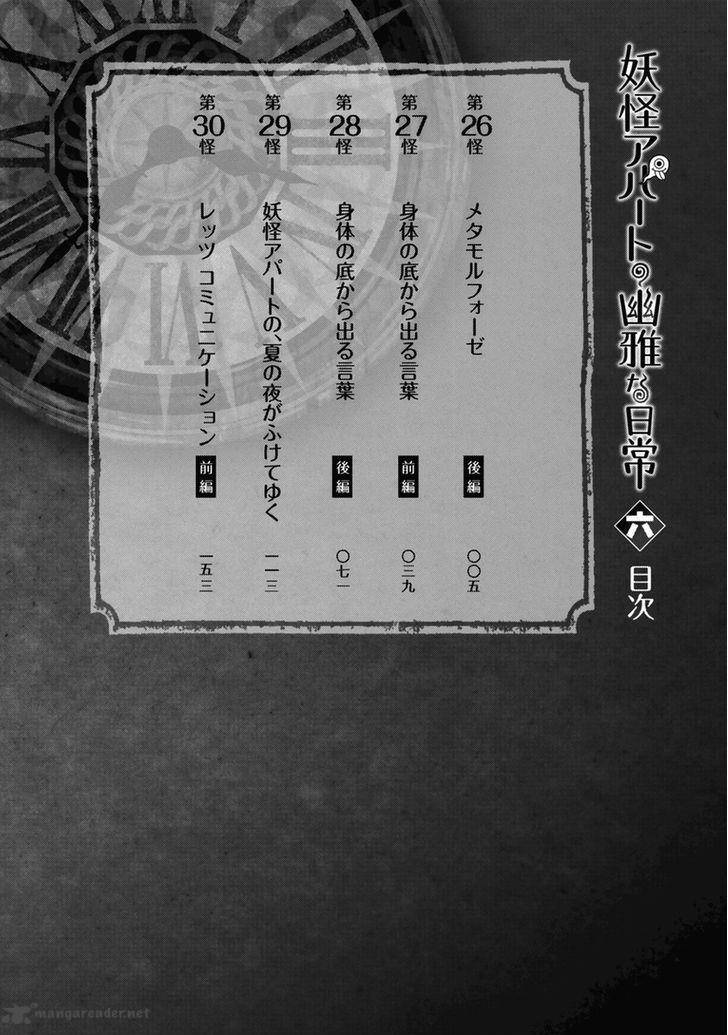 妖怪アパートの幽雅な日常 六 目次
第26怪 メタモルフォーゼ 後編 〇〇五
第27怪 身体の底から出る言葉 前編 〇三九
第28怪 身体の底から出る言葉 後編 〇七一
第29怪 妖怪アパートの、夏の夜がふけてゆく 一一三
第30怪 レッツ コミュニケーション 前編 一五三
mangareader.net